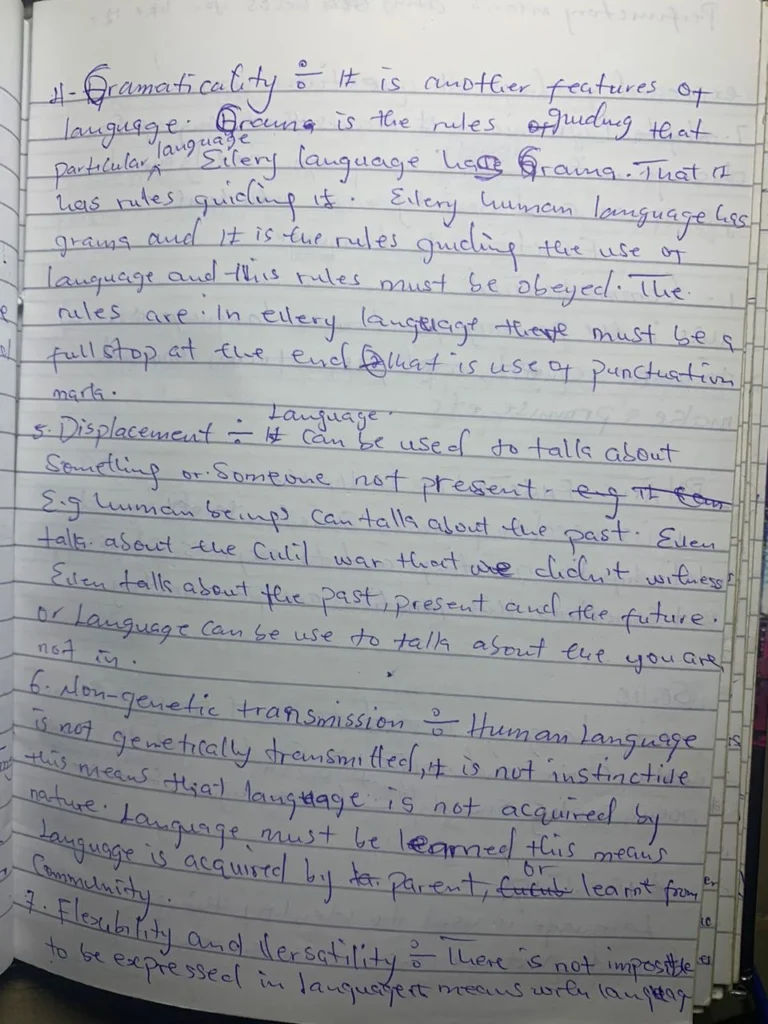 4- Gramaticality ÷ It is another features of
language. Grama is the rules guiding that
particular language Every language has Grama. That it
has rules guiding it. Every human language has
grama and it is the rules guiding the use of
language and this rules must be obeyed. The
rules are. In every language there must be a
full stop at the end that is use of punctuation
mark.
5. Displacement ÷ Language can be used to talk about
Something or Someone not present.
E.g human beings can talk about the past. Even
talk about the Civil war that we didn't witness
Even talk about the past, present and the future.
or Language can be use to talk about the you are
not in.
6. Non-genetic transmission ÷ Human Language
is not genetically transmitted, it is not instinctive
this means that language is not acquired by
nature. Language must be learned this means
Language is acquired by parent, or learnt from
Community.
7. Flexibility and Versatility ÷ There is not imposible
to be expressed in language means with language